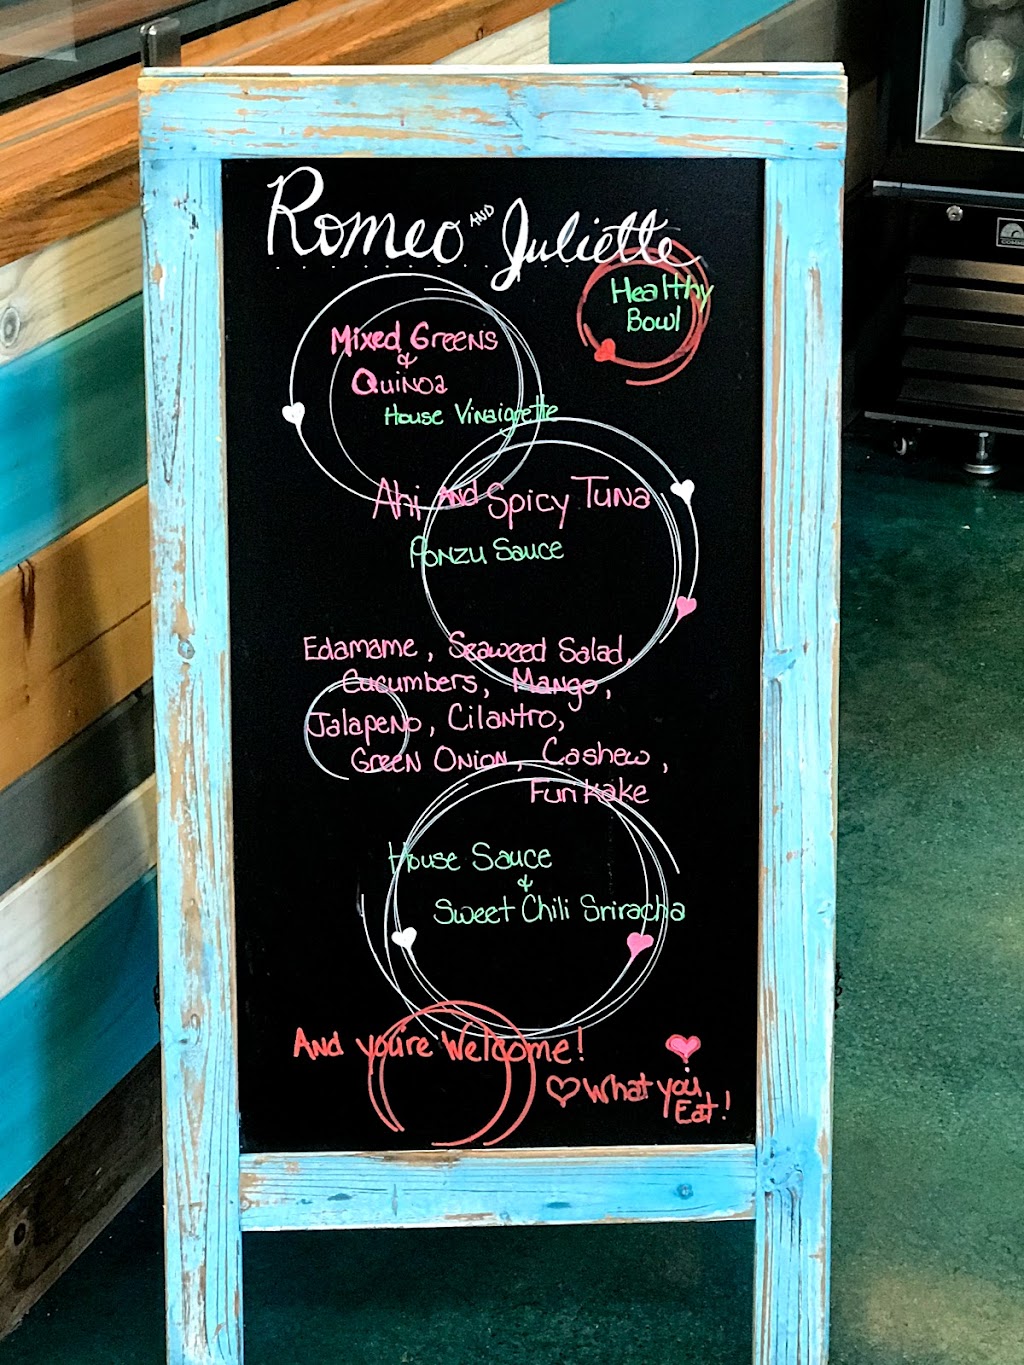 Romeo AND Juliette
Healthy
Bowl
Mixed Greens
&
Quinoa
House Vinaigrette
Ahi AND Spicy Tuna
Ponzu Sauce
Edamame, Seaweed Salad,
Cucumbers, Mango,
Jalapeno, Cilantro,
Green Onion, Cashew,
Furikake
House Sauce
&
Sweet Chili Sriracha
And you're Welcome!
What you
Eat!